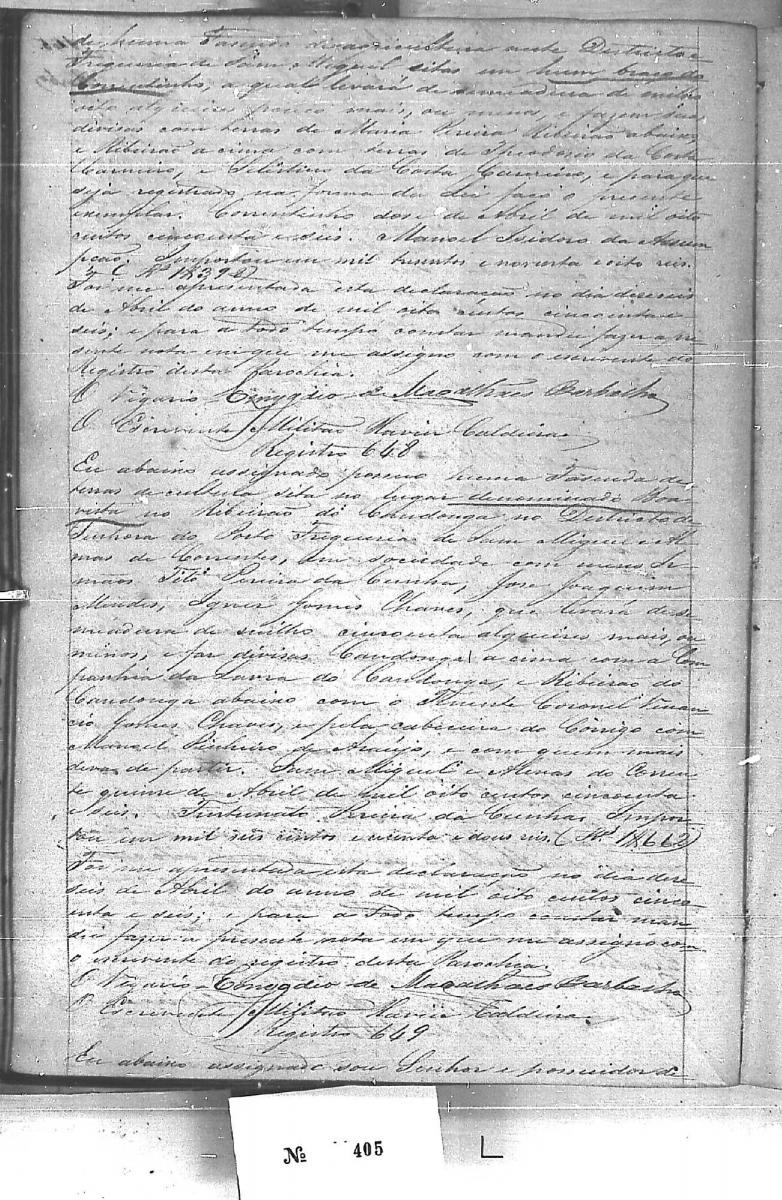 de huma Fasenda de agricultura neste Districto e
Freguesia de Sam Miguel sitas em hum braço do
Correntinho, a qual levará de semeadura de milho
oito alqueires pouco mais, ou menos, e fazem suas
divisas com terras de Maria Pereira Ribeirão abaixo,
e Ribeirão a cima com terras de Theodosio da Costa
Carneiro, e Silistino da Costa Carneiro, e para que
seja registrado na forma da Lei faço o presente
exemplar. Correntinho dose de Abril de mil oito
centos cincoenta e seis. Manoel Isidoro da Assum
pção. Importou em mil tresentos e noventa e oito reis.
(Rs 1$398)
Foi me apresentada esta declaração no dia deseseis
de Abril do anno de mil oito centos cincoenta e
seis; e para a todo tempo constar mandei fazer a pre
sente nota em que me assigno com o escrevente do
Registro desta Parochia.
O Vigario Emygdio de Magalhães Barbalho
O Escrevente Militão Xavier Caldeira
Registro 648
Eu abaixo assignado possuo huma Fasenda de
terras de cultura sita no lugar denominado Boa
vista no Ribeirão do Candonga no Districto de
Senhora do Porto Freguesia de Sam Miguel e Al
mas de Correntes, em sociedade com meus Ir
mãos Tito Pereira da Cunha, Jose Joaquim
Mendes, Ignes Gomes Chaves, que levará de se
meadura de milho cincoenta alqueires mais, ou
menos, e faz divisas Candonga a cima com a Com
panhia da Lavra do Candonga, e Ribeirão do
Candonga abaixo com o Tenente Coronel Venan
cio Gomes Chaves, e pela cabeceira do Corrigo com
Manoel Pinheiro de Araujo, e com quem mais
deva de partir. Sam Miguel e Almas do Corren
te quinze de Abril de mil oito centos cincoenta
e seis. Fortunato Pereira da Cunha. Impor
tou em mil seis centos e secenta e dous reis. (Rs 1$662)
Foi me apresentada esta declaração no dia deze
seis de Abril do anno de mil oito centos cinco
enta e seis; e para a todo tempo constar man
dei fazer a presente nota em que me assigno com
o escrevente do registro desta Parochia.
O Vigario Emygdio de Magalhães Barbalho
O Escrevente Militão Xavier Caldeira
Registro 649
Eu abaixo assignado sou Senhor e possuidor de
№ 405